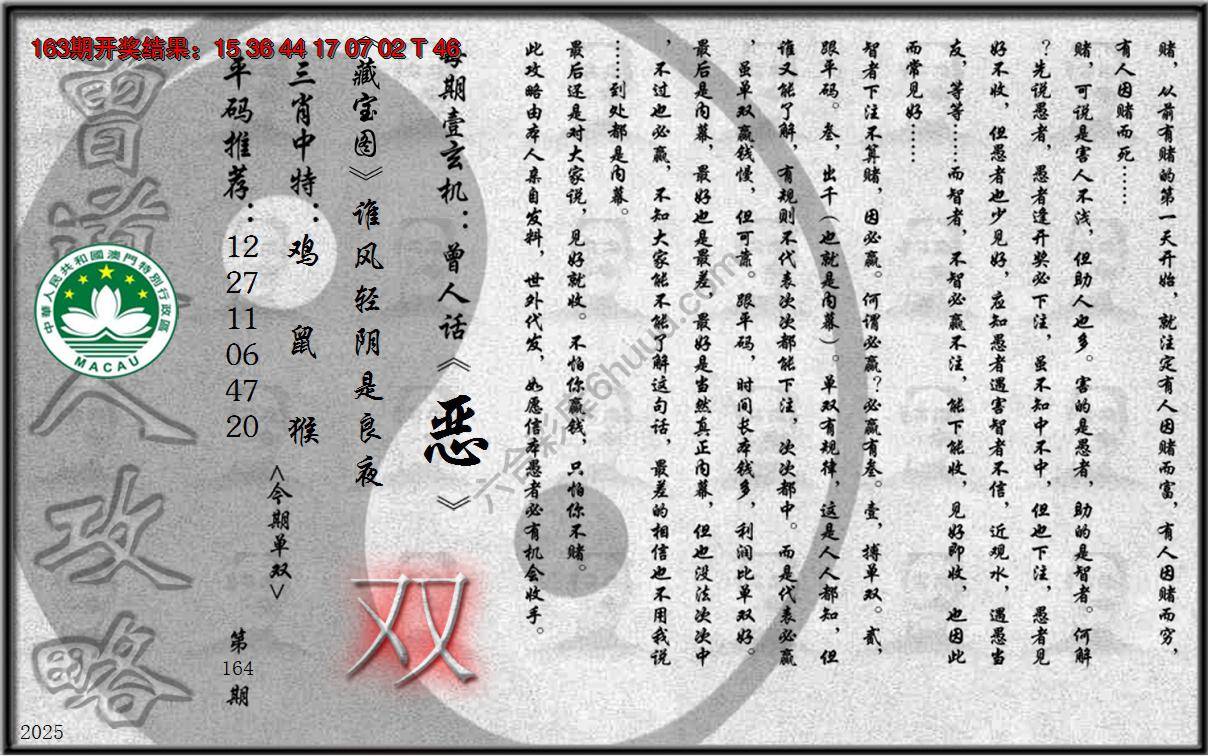 163期开奖结果：15 36 44 17 07 02 T 46
赌，从前有赌的第一天开始，就注定有人因赌而富，有人因赌而穷，
有人因赌而死……
赌，可说是害人不浅，但助人也多。害的是愚者，助的是智者。何解
？先说愚者，愚者逢开奖必下注，虽不知中不中，但也下注，愚者见
好不收，但愚者也少见好，应知愚者遇害智者不信，近观水，遇愚当
友，等等……而智者，不智必赢不注，能下能收，见好即收，也因此
而常见好……
智者下注不算赌，因必赢。何谓必赢？必赢有叁。壹，搏单双。贰，
跟平码。叁，出千（也就是内幕）。单双有规律，这是人人都知，但
谁又能了解，有规则不代表次次都能下注，次次都中。而是代表必赢
，虽单双赢钱慢，但可靠。跟平码，时间长本钱多，利润比单双好。
最后是内幕，最好也是最差，最好是当然真正内幕，但也没法次次中
，不过也必赢，不知大家能不能了解这句话，最差的相信也不用我说
……到处都是内幕。
最后还是对大家说，见好就收。不怕你赢钱，只怕你不赌。
此攻略由本人亲自发料，世外代发，如愿信本愚者必有机会收手。
每期壹玄机：曾人话《恶》
《藏宝图》谁风轻阴是良夜
三肖中特：鸡 鼠 猴
平码推荐：12 27 11 06 47 20
<今期单双>
双
第164期
曾道人攻略
中華人民共和國澳門特別行政區
MACAU
六合彩库6huuu.com
2025